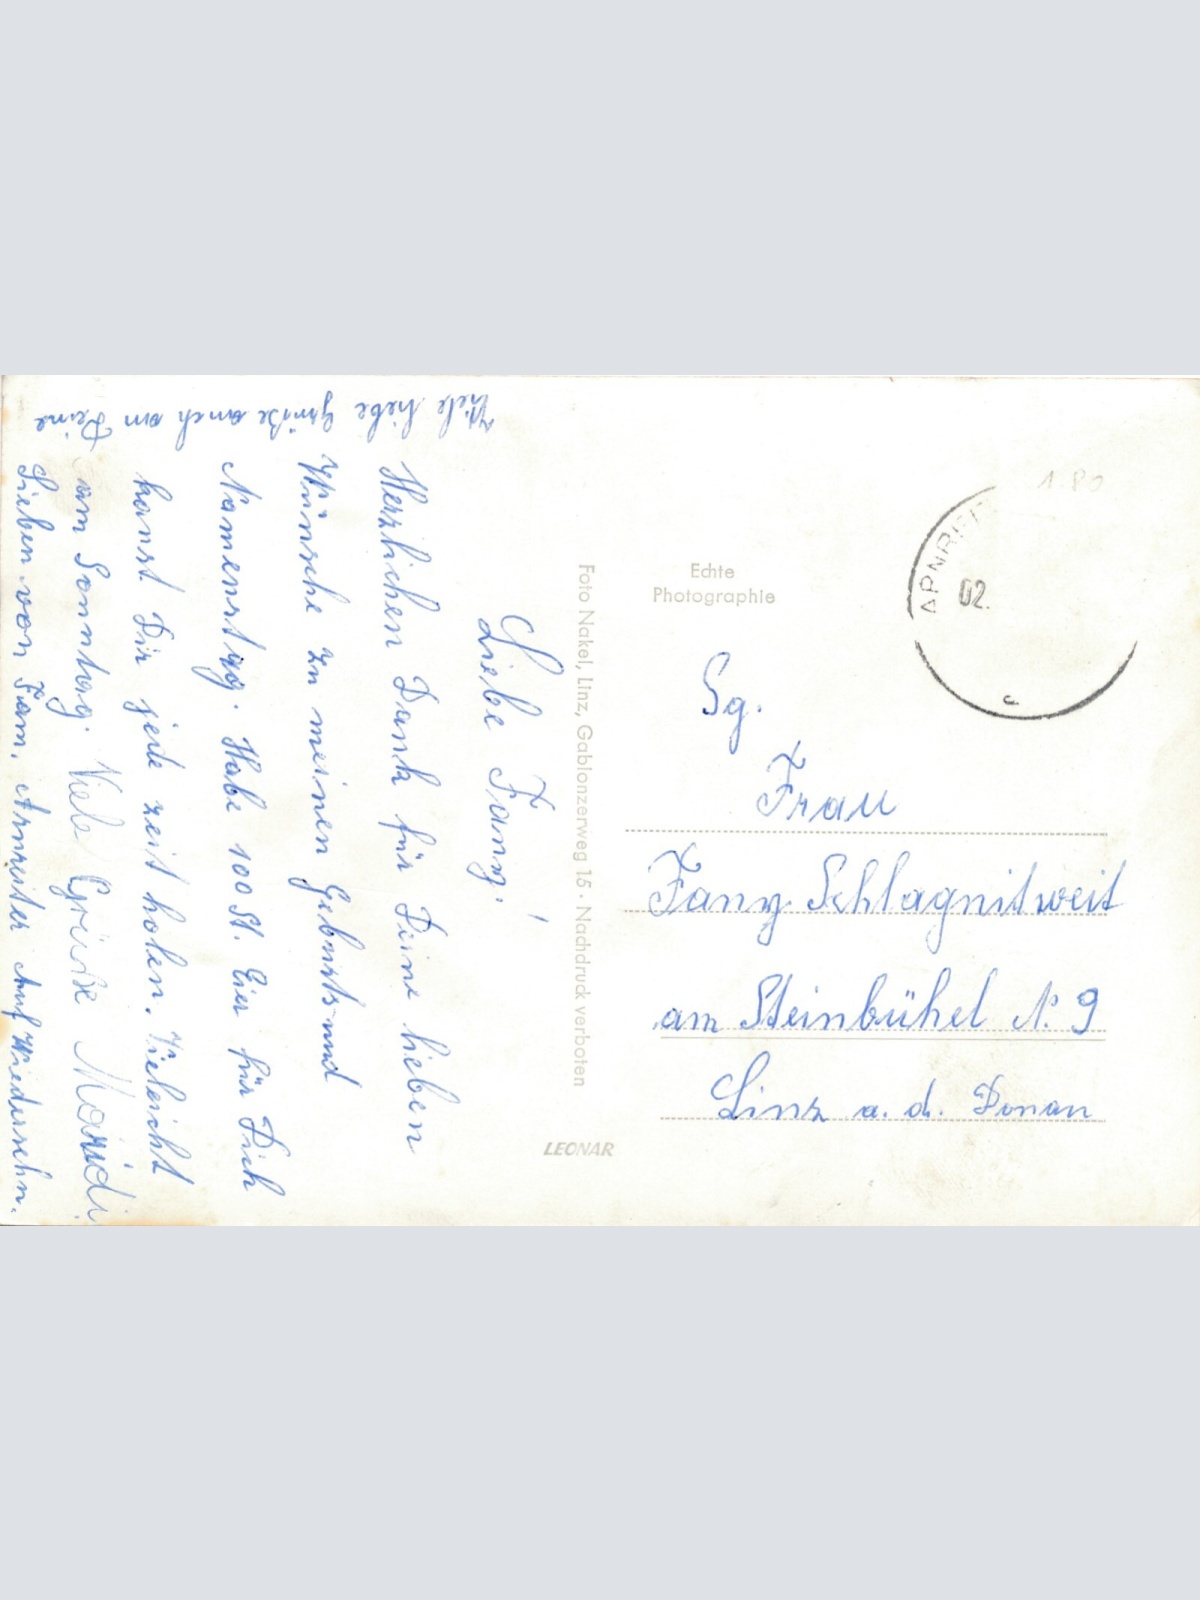 Liebe Fany!
Herzlichen Dank für Deine lieben
Wünsche zu meinen Geburts und
Namenstag. Habe 100 St. Eier für Dich
kanst Dir jede zeit holen. Vieleicht
am Sonntag. Viele Grüße Maridi
Viele liebe Grüße auch an Deine
Lieben von Fam. Arnreiter Auf Wiedersehn.
Foto Nakel, Linz, Gablonzerweg 15 · Nachdruck verboten
LEONAR
Echte
Photographie
ARNREIT
02.
1 80
Sg.
Frau
Fany Schlagnitweit
am Steinbühel N. 9
Linz a. d. Donau